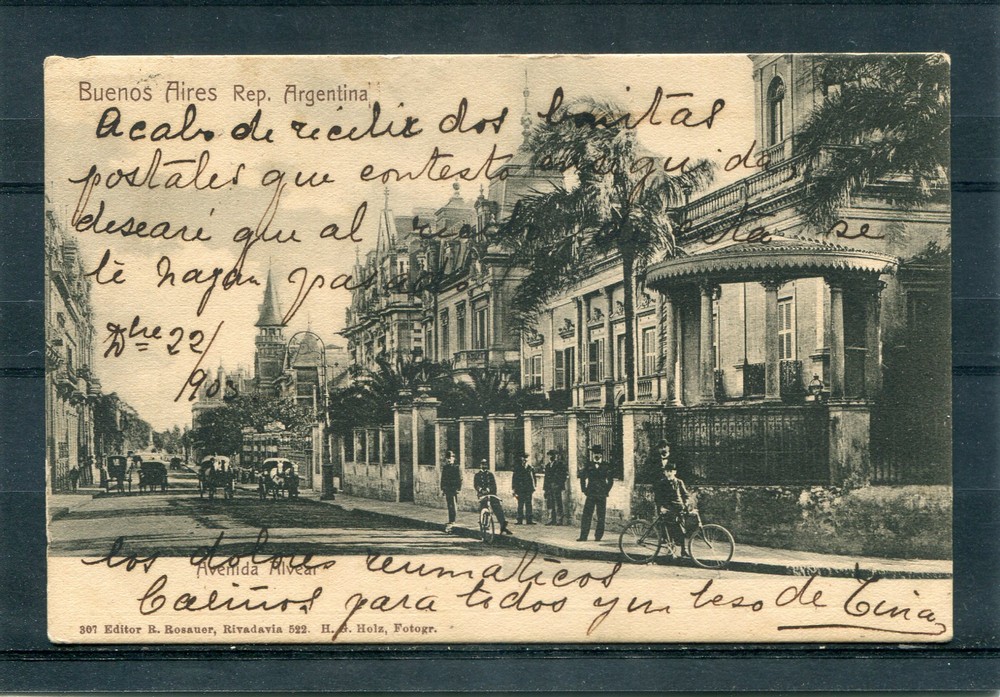 Buenos Aires Rep. Argentina
Acabo de recibir dos bonitas
postales que contesto en seguida
desearé que al recibo de esta se
te hayan pasado
Dbre 22/
903
los dolores reumaticos
Avenida Alvear
Cariños para todos y un beso de Tina
307 Editor R. Rosauer, Rivadavia 522. H. G. Holz, Fotogr.